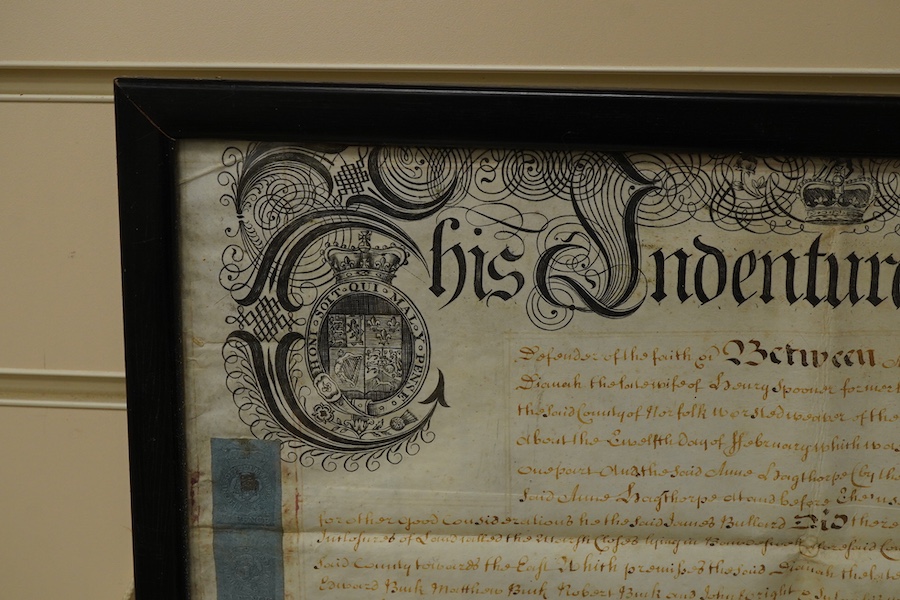 This Indentur
HONI · SOIT · QUI · MAL · Y · PENSE
Defender of the faith &c Between
Dianah the late wife of Henry Spooner former
the said County of Norfolk worstedweaver of the
about the Twelfth Day of February which was
one part And the said Anne Hagthorpe (by th
said Anne Hagthorpe at and before
for other good Considerations he the said James Bullard Did there
Inclosures of Land called the Marsh Closes lying in aforesaid Cou
said County towards the East Which premises the said Dianah the late
Edward Buck Matthew Buck Robert Buck and John